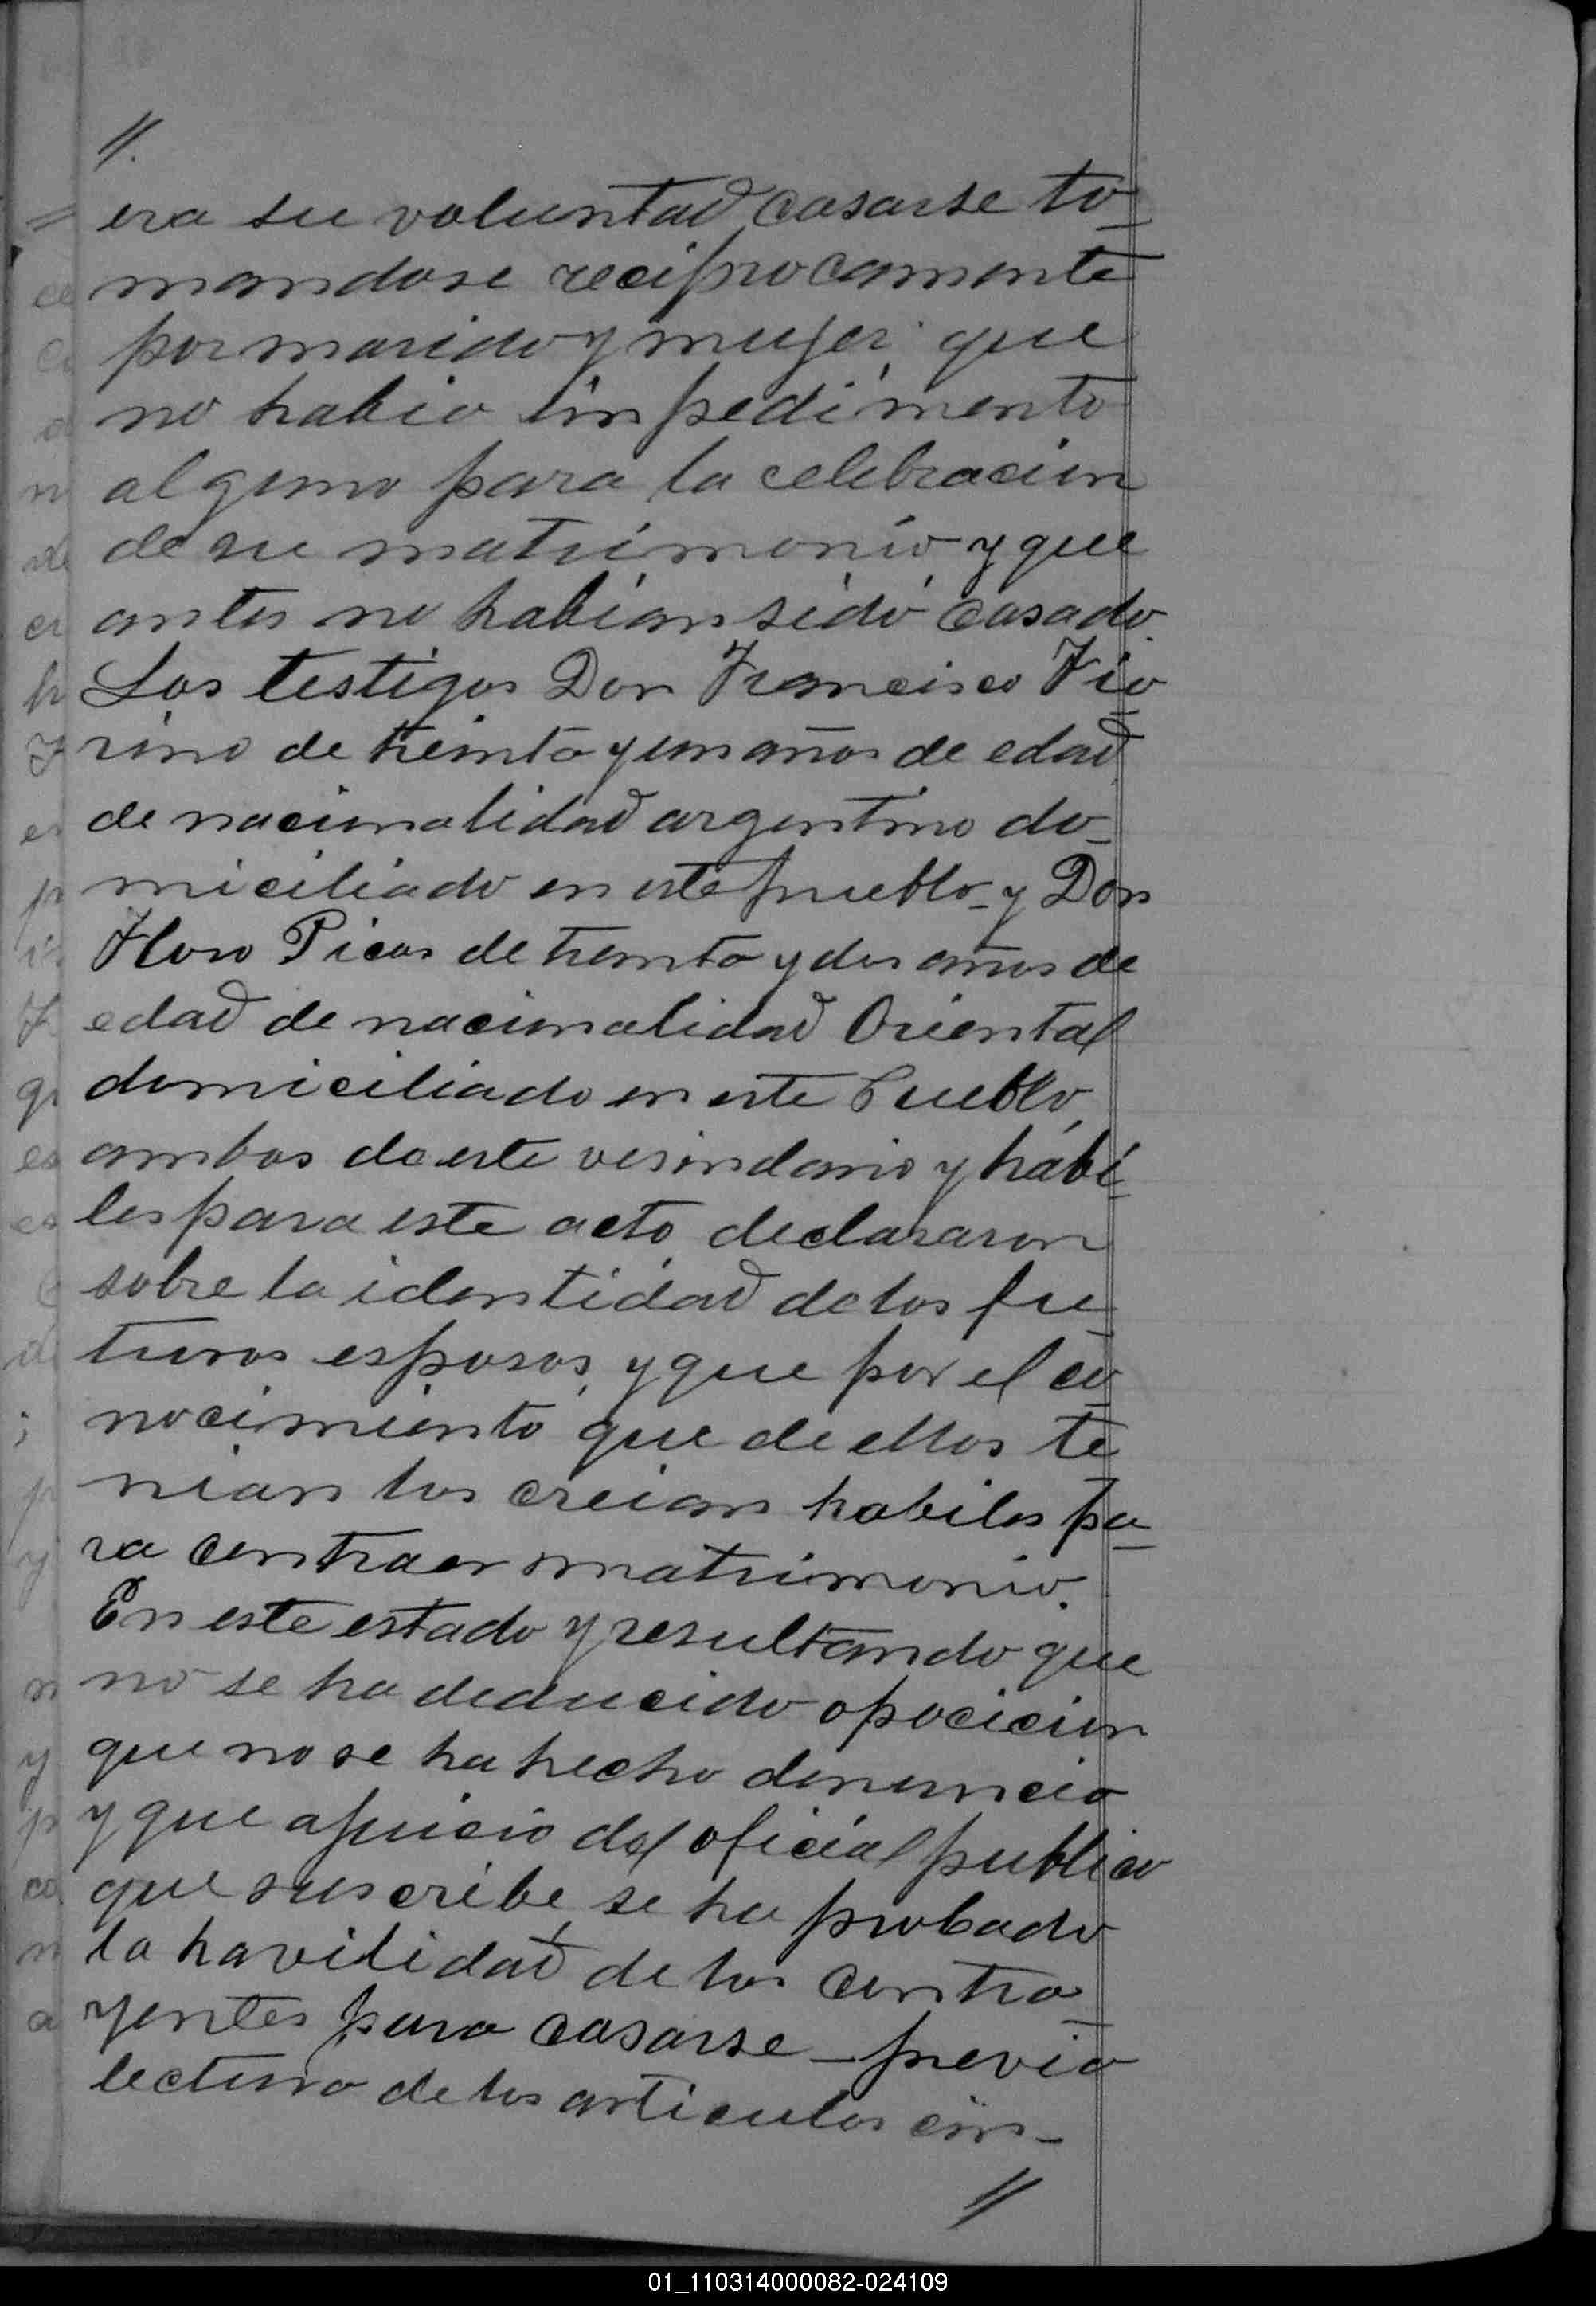 //.
era su voluntad casarse to-
mandose reciprocamente
por marido y mujer, que
no habia impedimento
alguno para la celebracion
de su matrimonio y que
antes no habian sido casado.
Los testigos Don Francisco Fio-
rino de treinta y un años de edad
de nacionalidad argentino do-
miciliado en este pueblo - y Don
Floro Picos de treinta y dos años de
edad de nacionalidad Oriental
domiciliado en este Pueblo,
ambos de este vesindario y habi-
les para este acto, declararon
sobre la identidad de los fu-
turos esposos, y que por el co-
nocimiento que de ellos te-
nian los creian habiles pa-
ra contraer matrimonio.
En este estado y resultando que
no se ha deducido oposicion
que no se ha hecho denuncia
y que a juicio del oficial publico
que suscribe, se ha probado
la havilidad de los contra-
yentes para casarse - previa
lectura de los articulos cin-
//
01_110314000082-024109